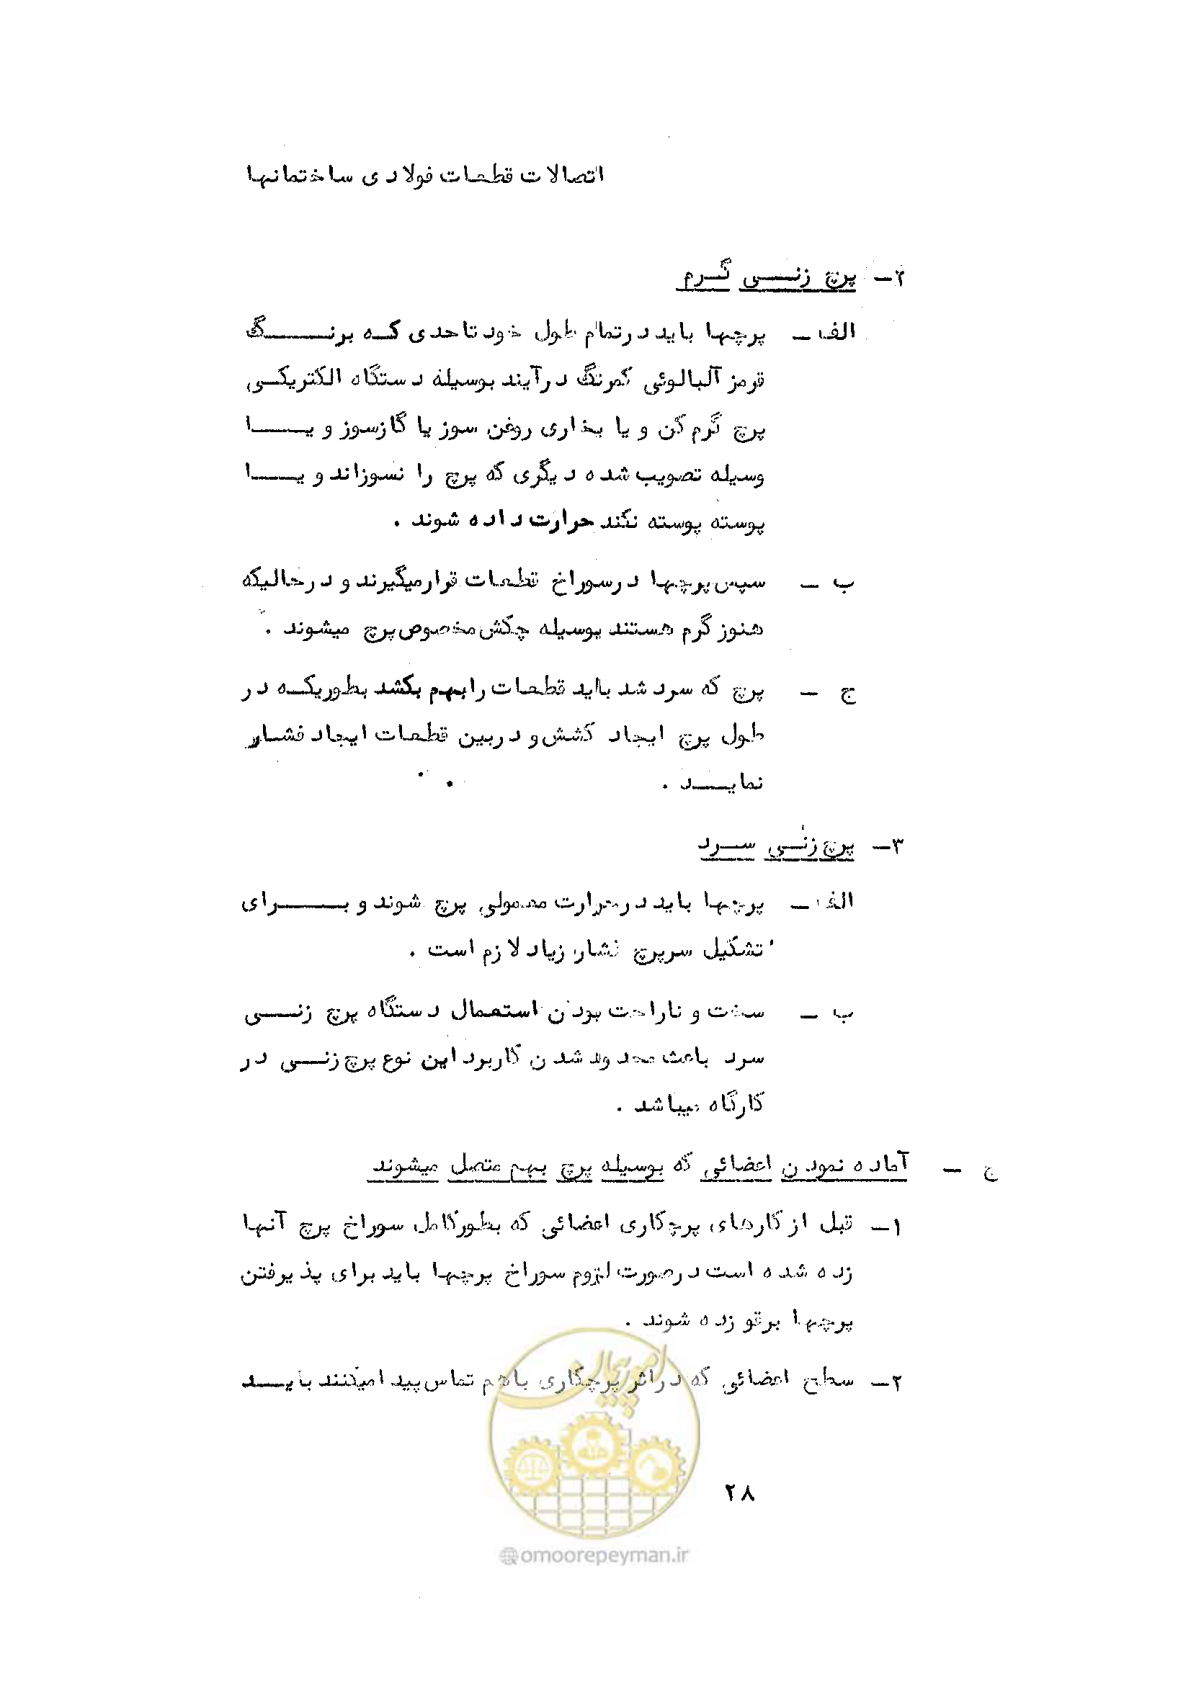 اتصالات قطعات فولادی ساختمانها
۲ـ پرچ زنـــی گـرم
الف ـ پرچها باید در تمام طول خود تا حدی کـه برنـــــگ
قرمز آلبالوئی کمرنگ درآیند بوسیله دستگاه الکتریکـی
پرچ گرم کن و یا بخاری روغن سوز یا گازسوز و یـــا
وسیله تصویب شده دیگری که پرچ را نسوزاند و یـــا
پوسته پوسته نکند حرارت داده شوند .
ب ـ سپس پرچها در سوراخ قطعات قرار میگیرند و در حالیکه
هنوز گرم هستند بوسیله چکش مخصوص پرچ میشوند .
ج ـ پرچ که سرد شد باید قطعات را بهم بکشد بطوریکـه در
طول پرچ ایجاد کشش و در بین قطعات ایجاد فشـار
نمایـــد .
۳ـ پرچ زنـی ســرد
الف ـ پرچها باید در حرارت معمولی پرچ شوند و بـــرای
تشکیل سرپرچ فشار زیاد لازم است .
ب ـ سخت و ناراحت بودن استعمال دستگاه پرچ زنـــی
سرد باعث محدود شدن کاربرد این نوع پرچ زنـــی در
کارگاه میباشد .
ج ـ آماده نمودن اعضائی که بوسیله پرچ بهم متصل میشوند
۱ـ قبل از کارهای پرچکاری اعضائی که بطور کامل سوراخ پرچ آنها
زده شده است در صورت لزوم سوراخ پرچها باید برای پذیرفتن
پرچها برقو زده شوند .
۲ـ سطح اعضائی که در اثر پرچکاری با هم تماس پیدا میکنند بایـــد
امور پیمان
۲۸
@omoorepeyman.ir